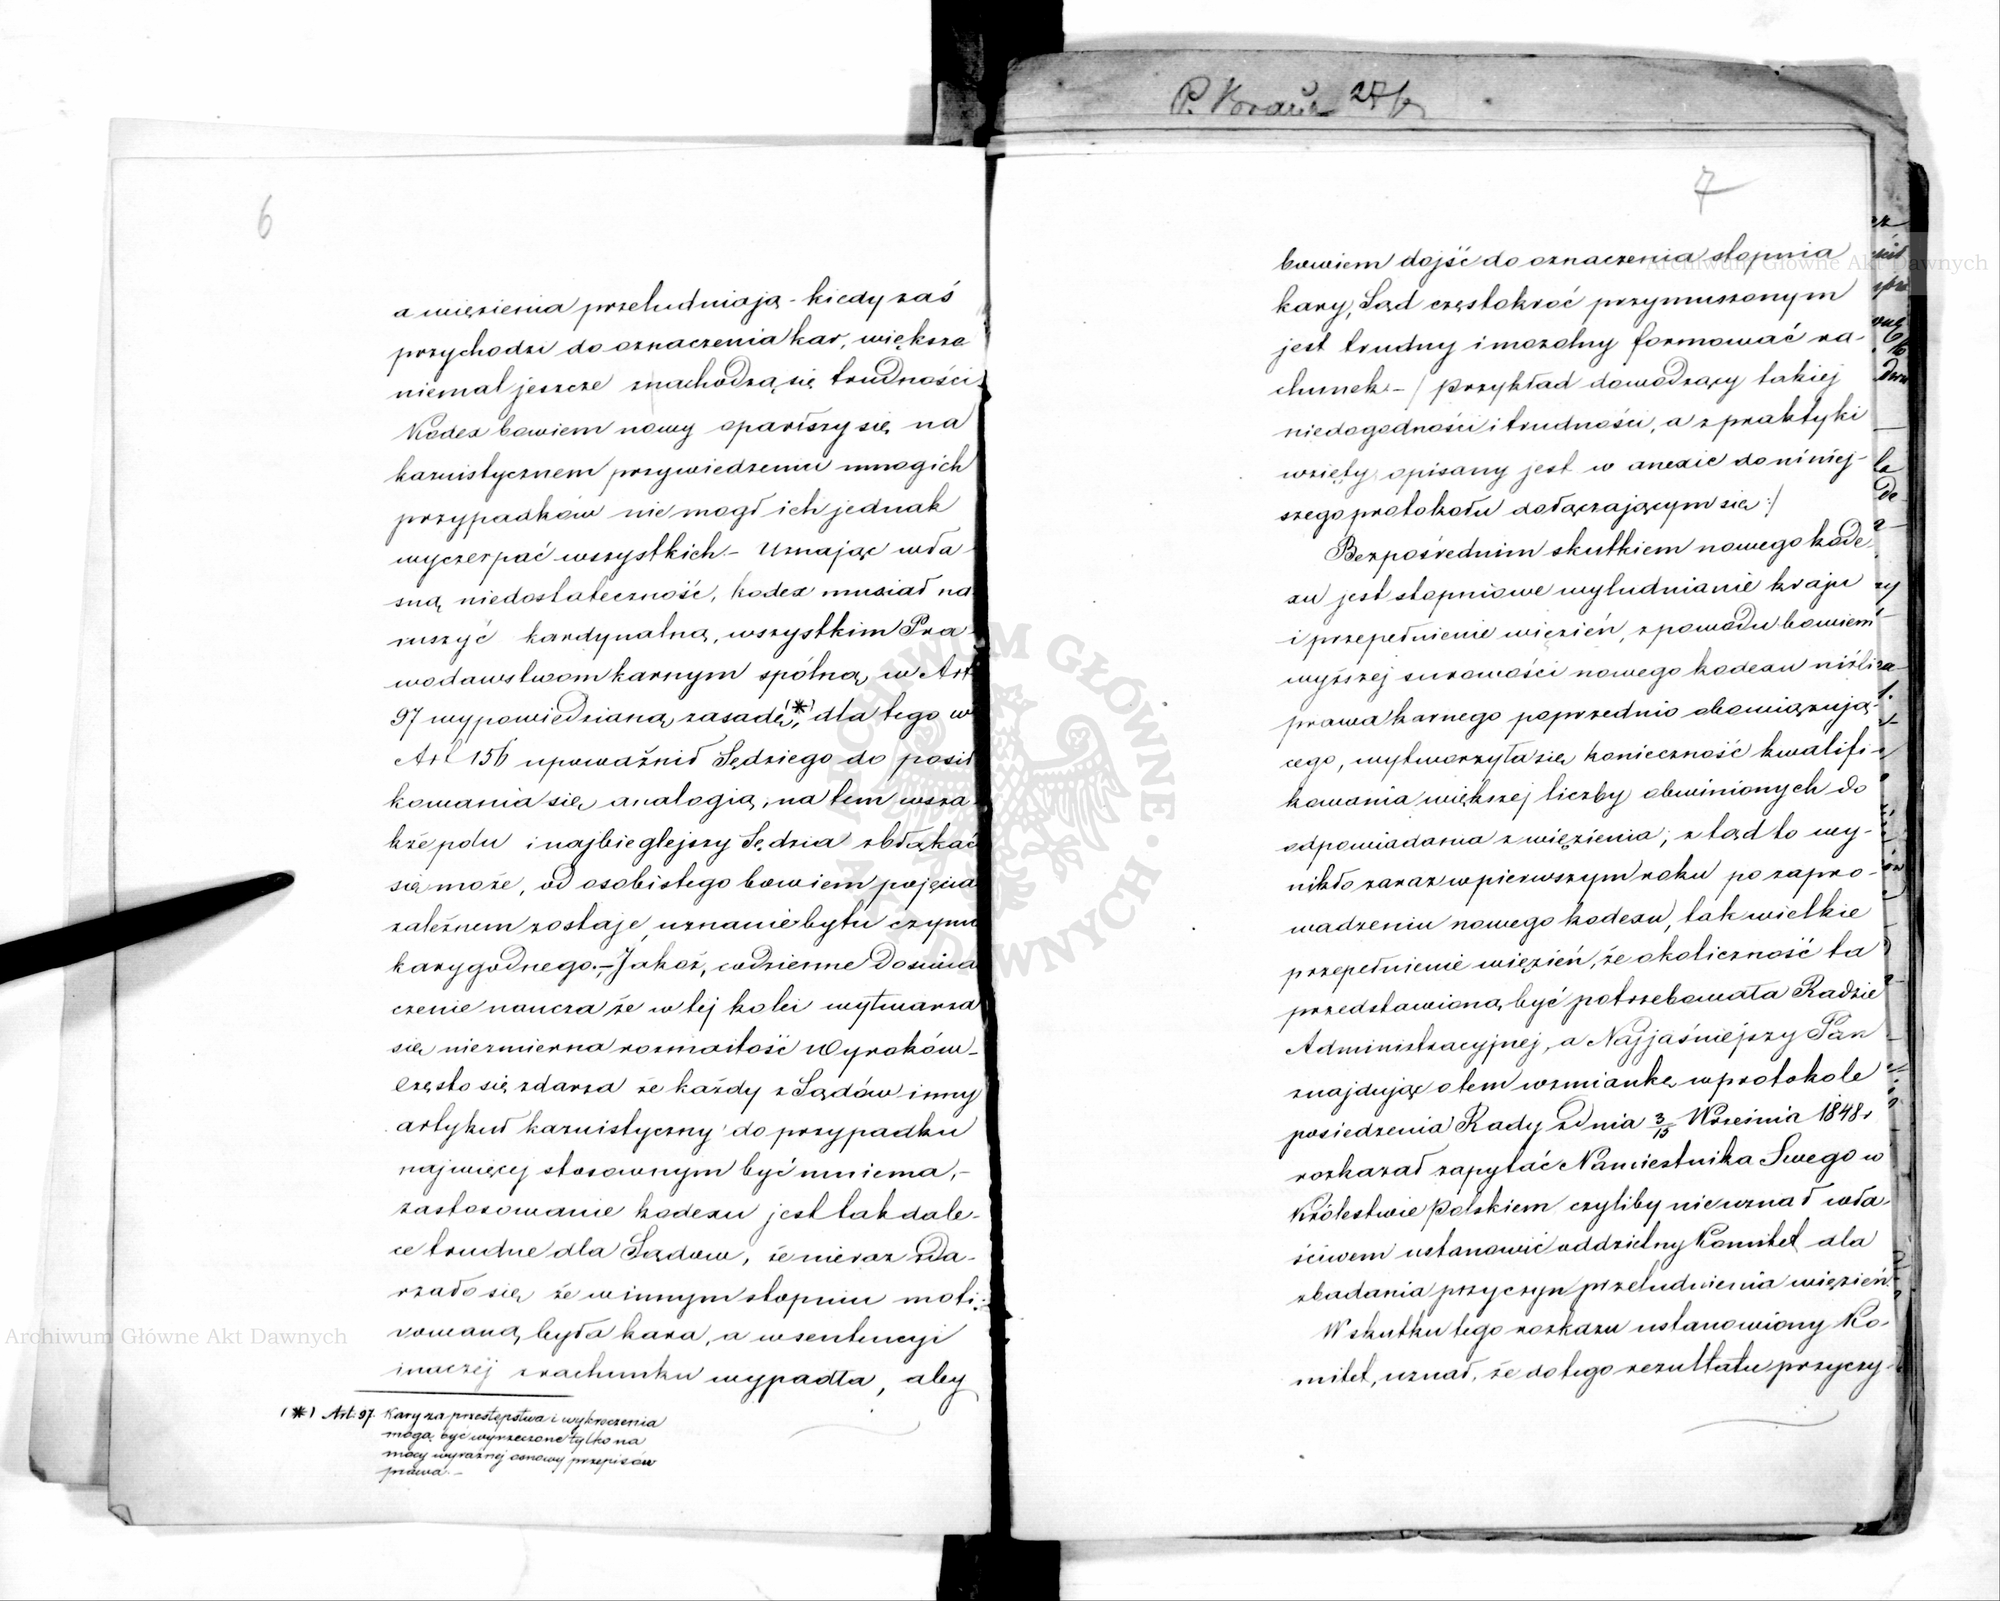 6
a więzienia przeludniają - kiedy zaś
przychodzi do oznaczenia kar, większe
niemal jeszcze znachodzą się trudności
Kodex bowiem nowy oparłszy się na
kazuistycznem przywiedzeniu mnogich
przypadków nie mógł ich jednak
wyczerpać wszystkich - Uznając wła-
sną niedostateczność, kodex musiał na
ruszyć kardynalną, wszystkim Pra
wodawstwom karnym spólną w Art
97 wypowiedzianą zasadę (*), dla tego w
Art 156 upoważnił Sędziego do posił
kowania się analogią, na tem wsza-
kże polu i najbieglejszy Sędzia zbłąkać
się może, od osobistego bowiem pojęcia
zależnem zostaje uznanie bytu czynu
karygodnego. - Jakoż, codzienne doświa
czenie naucza że w tej kolei wytwarza
się niezmierna rozmaitość Wyroków -
Często się zdarza że każdy z Sądów inny
artykuł kazuistyczny do przypadku
najwięcej stosownym być mniema, -
zastosowanie kodexu jest tak dale-
ce trudne dla Sądów, że nieraz zda-
rzało się że w innym stopniu moti-
vowaną była kara, a w sentencyi
inaczéj z rachunku wypadła, aby
(*) Art. 97. Kary za przestępstwa i wykroczenia
mogą być wyrzeczone tylko na
mocy wyraźnej osnowy przepisów
prawa. -
P. 27/6
7
bowiem dojść do oznaczenia stopnia
kary, Sąd częstokroć przymuszonym
jest trudny i mozolny formować ra-
chunek - / przykład dowodzący takiej
niedogodności i trudności, a z praktyki
wzięty opisany jest w anexie do niniej-
szego protokołu dołączającym się :/
Bezpośrednim skutkiem nowego kode-
xu jest stopniowe wyludnianie kraju
i przepełnienie więzień, z powodu bowiem
wyższej surowości nowego kodexu niźli
prawa karnego poprzednio obowiązują-
cego, wytworzyła się konieczność kwalifi-
kowania większej liczby obwinionych do
odpowiadania z więzienia; z tąd to wy-
nikło zaraz w pierwszym roku po zapro-
wadzeniu nowego kodexu, tak wielkie
przepełnienie więzień, że okoliczność ta
przedstawioną być potrzebowała Radzie
Administracyjnej, a Najjaśniejszy Pan
znajdując o tem wzmiankę w protokole
posiedzenia Rady z dnia 3/15 Września 1848 r
rozkazał zapytać Namiestnika Swego w
Królestwie Polskiem czyliby nie uznał wła-
ściwem ustanowić oddzielny Komitet dla
zbadania przyczyn przeludnienia więzień
W skutku tego rozkazu ustanowiony Ko-
mitet, uznał, że do tego rezultatu przyczy-
ARCHIWUM GŁÓWNE AKT DAWNYCH
Archiwum Główne Akt Dawnych
Archiwum Główne Akt Dawnych